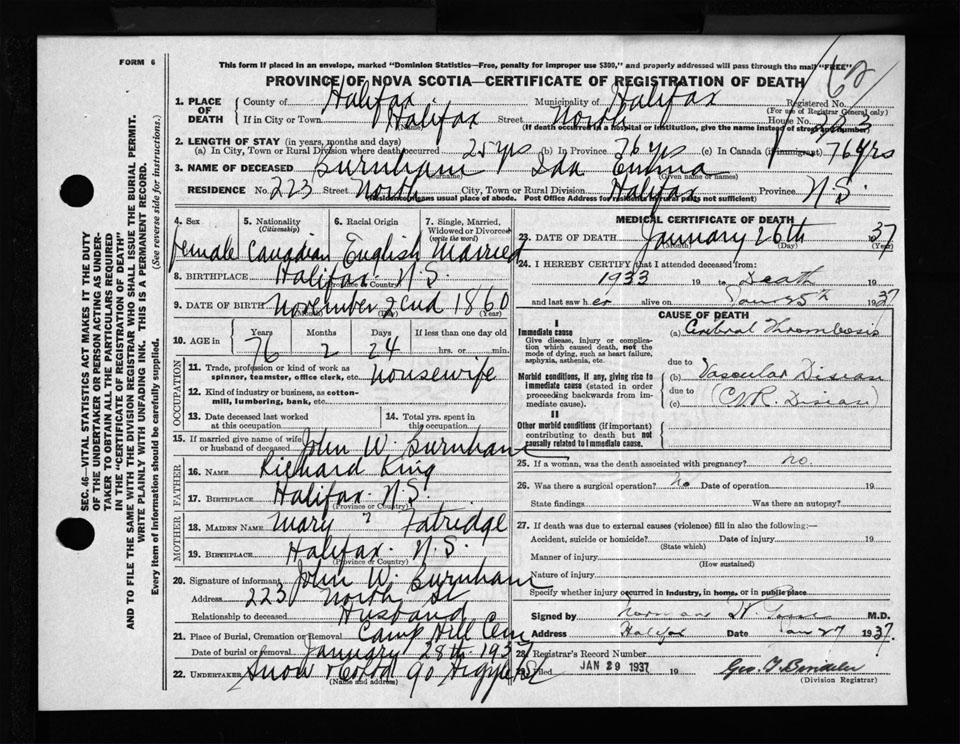 FORM 6
This form if placed in an envelope, marked "Dominion Statistics—Free, penalty for improper use $300," and properly addressed will pass through the mail "FREE"
PROVINCE OF NOVA SCOTIA—CERTIFICATE OF REGISTRATION OF DEATH
162
1. PLACE OF DEATH
County of Halifax Municipality of Halifax Registered No.
(For use of Registrar General only)
If in City or Town Halifax Street North House No. 223
(Name)
(If death occurred in a hospital or institution, give the name instead of street and number)
2. LENGTH OF STAY (in years, months and days)
(a) In City, Town or Rural Division where death occurred 25 yrs (b) In Province 76 yrs (c) In Canada (if immigrant) 76 yrs
3. NAME OF DECEASED Burnham Ida Emma
(Surname) (Given name or names)
RESIDENCE No. 223 Street North City, Town or Rural Division Halifax Province N.S.
(Residence means usual place of abode. Post Office Address for residents in rural parts not sufficient)
4. Sex female
5. Nationality (Citizenship) Canadian
6. Racial Origin English
7. Single, Married, Widowed or Divorced (write the word) Married
8. BIRTHPLACE Halifax. N.S.
(Province or Country)
9. DATE OF BIRTH November 22nd 1860
(Month) (Day) (Year)
10. AGE in Years 76 Months 2 Days 24 If less than one day old hrs. or min.
OCCUPATION
11. Trade, profession or kind of work as spinner, teamster, office clerk, etc. Housewife
12. Kind of industry or business, as cotton-mill, lumbering, bank, etc.
13. Date deceased last worked at this occupation
14. Total yrs. spent in this occupation
15. If married give name of wife or husband of deceased John W. Burnham
FATHER
16. NAME Richard King
17. BIRTHPLACE Halifax. N.S.
(Province or Country)
MOTHER
18. MAIDEN NAME Mary ? Fatridge
19. BIRTHPLACE Halifax. N.S.
(Province or Country)
20. Signature of informant John W. Burnham
Address 223 North St
Relationship to deceased Husband
21. Place of Burial, Cremation or Removal Camp Hill Cem
Date of burial or removal January 28th 1937
22. UNDERTAKER Snow & Co Ltd 90 Argyle St
(Name and address)
MEDICAL CERTIFICATE OF DEATH
23. DATE OF DEATH January 26th 37
(Month) (Day) (Year)
24. I HEREBY CERTIFY that I attended deceased from:
1933 19 to Death 19
and last saw her alive on Jan 25th 1937
CAUSE OF DEATH
I
Immediate cause
Give disease, injury or complication which caused death, not the mode of dying, such as heart failure, asphyxia, asthenia, etc.
(a) Cerebral Thrombosis
due to
Morbid conditions, if any, giving rise to immediate cause (stated in order proceeding backwards from immediate cause).
(b) Vascular Disease
due to
(c) (C.V.R. Disease)
II
Other morbid conditions (if important) contributing to death but not causally related to immediate cause.
25. If a woman, was the death associated with pregnancy? no.
26. Was there a surgical operation? No Date of operation 19
State findings Was there an autopsy?
27. If death was due to external causes (violence) fill in also the following:—
Accident, suicide or homicide? Date of injury 19
(State which)
Manner of injury
(How sustained)
Nature of injury
Specify whether injury occurred in industry, in home, or in public place
Signed by Norman M.D.
Address Halifax Date Jan 27 1937.
28. Registrar's Record Number
Filed JAN 29 1937 19
(Division Registrar)
SEC. 46—VITAL STATISTICS ACT MAKES IT THE DUTY
OF THE UNDERTAKER OR PERSON ACTING AS UNDER-
TAKER TO OBTAIN ALL THE PARTICULARS REQUIRED
IN THE "CERTIFICATE OF REGISTRATION OF DEATH"
AND TO FILE THE SAME WITH THE DIVISION REGISTRAR WHO SHALL ISSUE THE BURIAL PERMIT.
WRITE PLAINLY WITH UNFADING INK. THIS IS A PERMANENT RECORD.
Every item of Information should be carefully supplied. (See reverse side for instructions.)